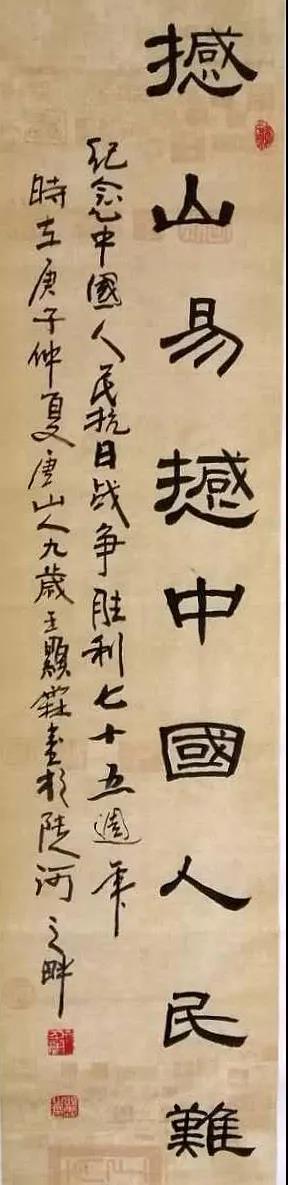 撼山易撼中國人民難
紀念中國人民抗日战争胜利七十五週年
時在庚子仲夏唐山人九歲王顯霖書於陡河之畔